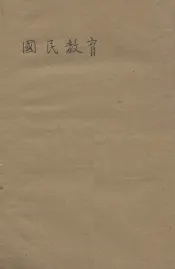 國民教育